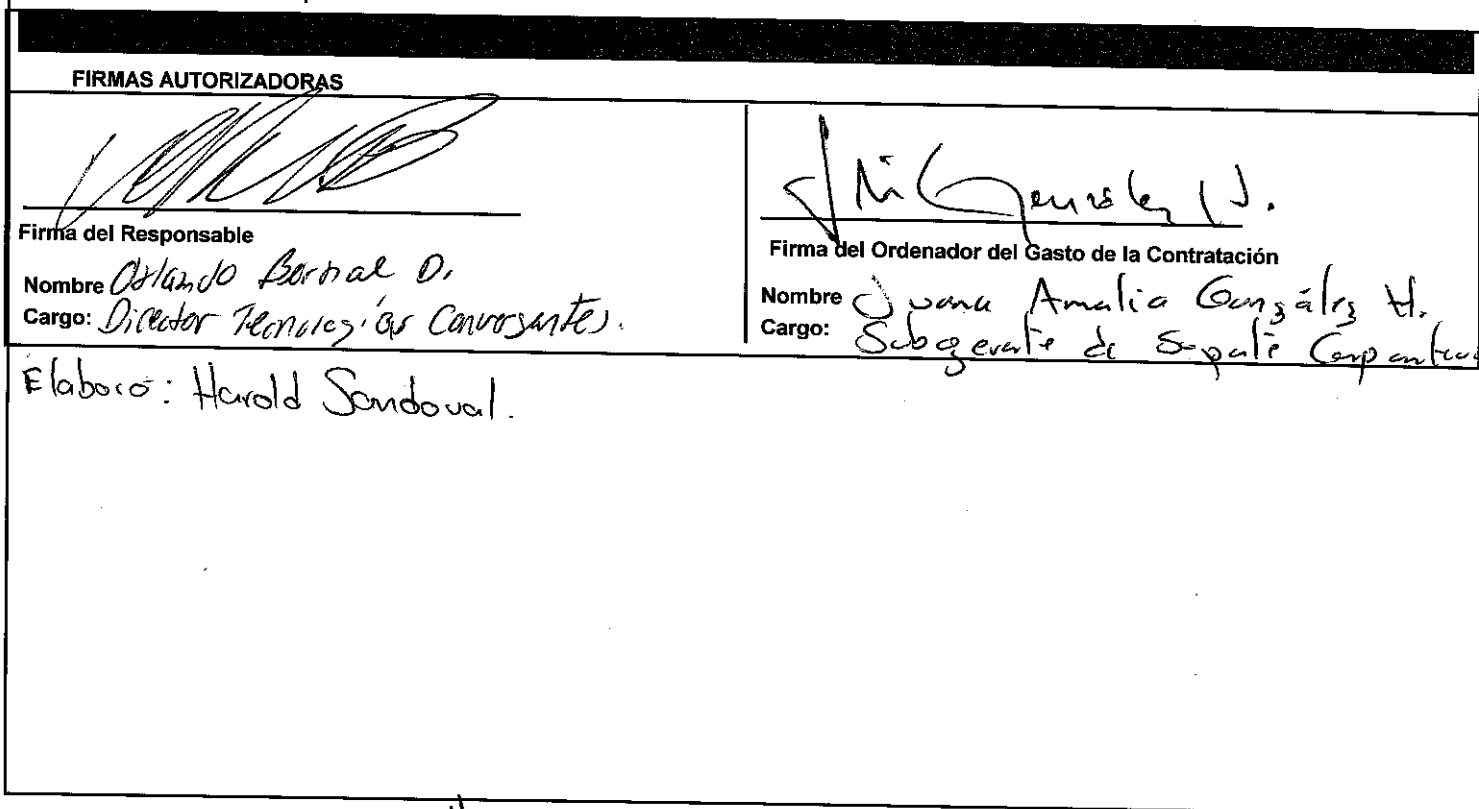 FIRMAS AUTORIZADORAS
Firma del Responsable
Nombre Orlando Bernal D.
Cargo: Director Tecnologías Convergentes.
Firma del Ordenador del Gasto de la Contratación
Nombre Juana Amalia González H.
Cargo: Subgerente de Soporte
Elaboró: Harold Sandoval.